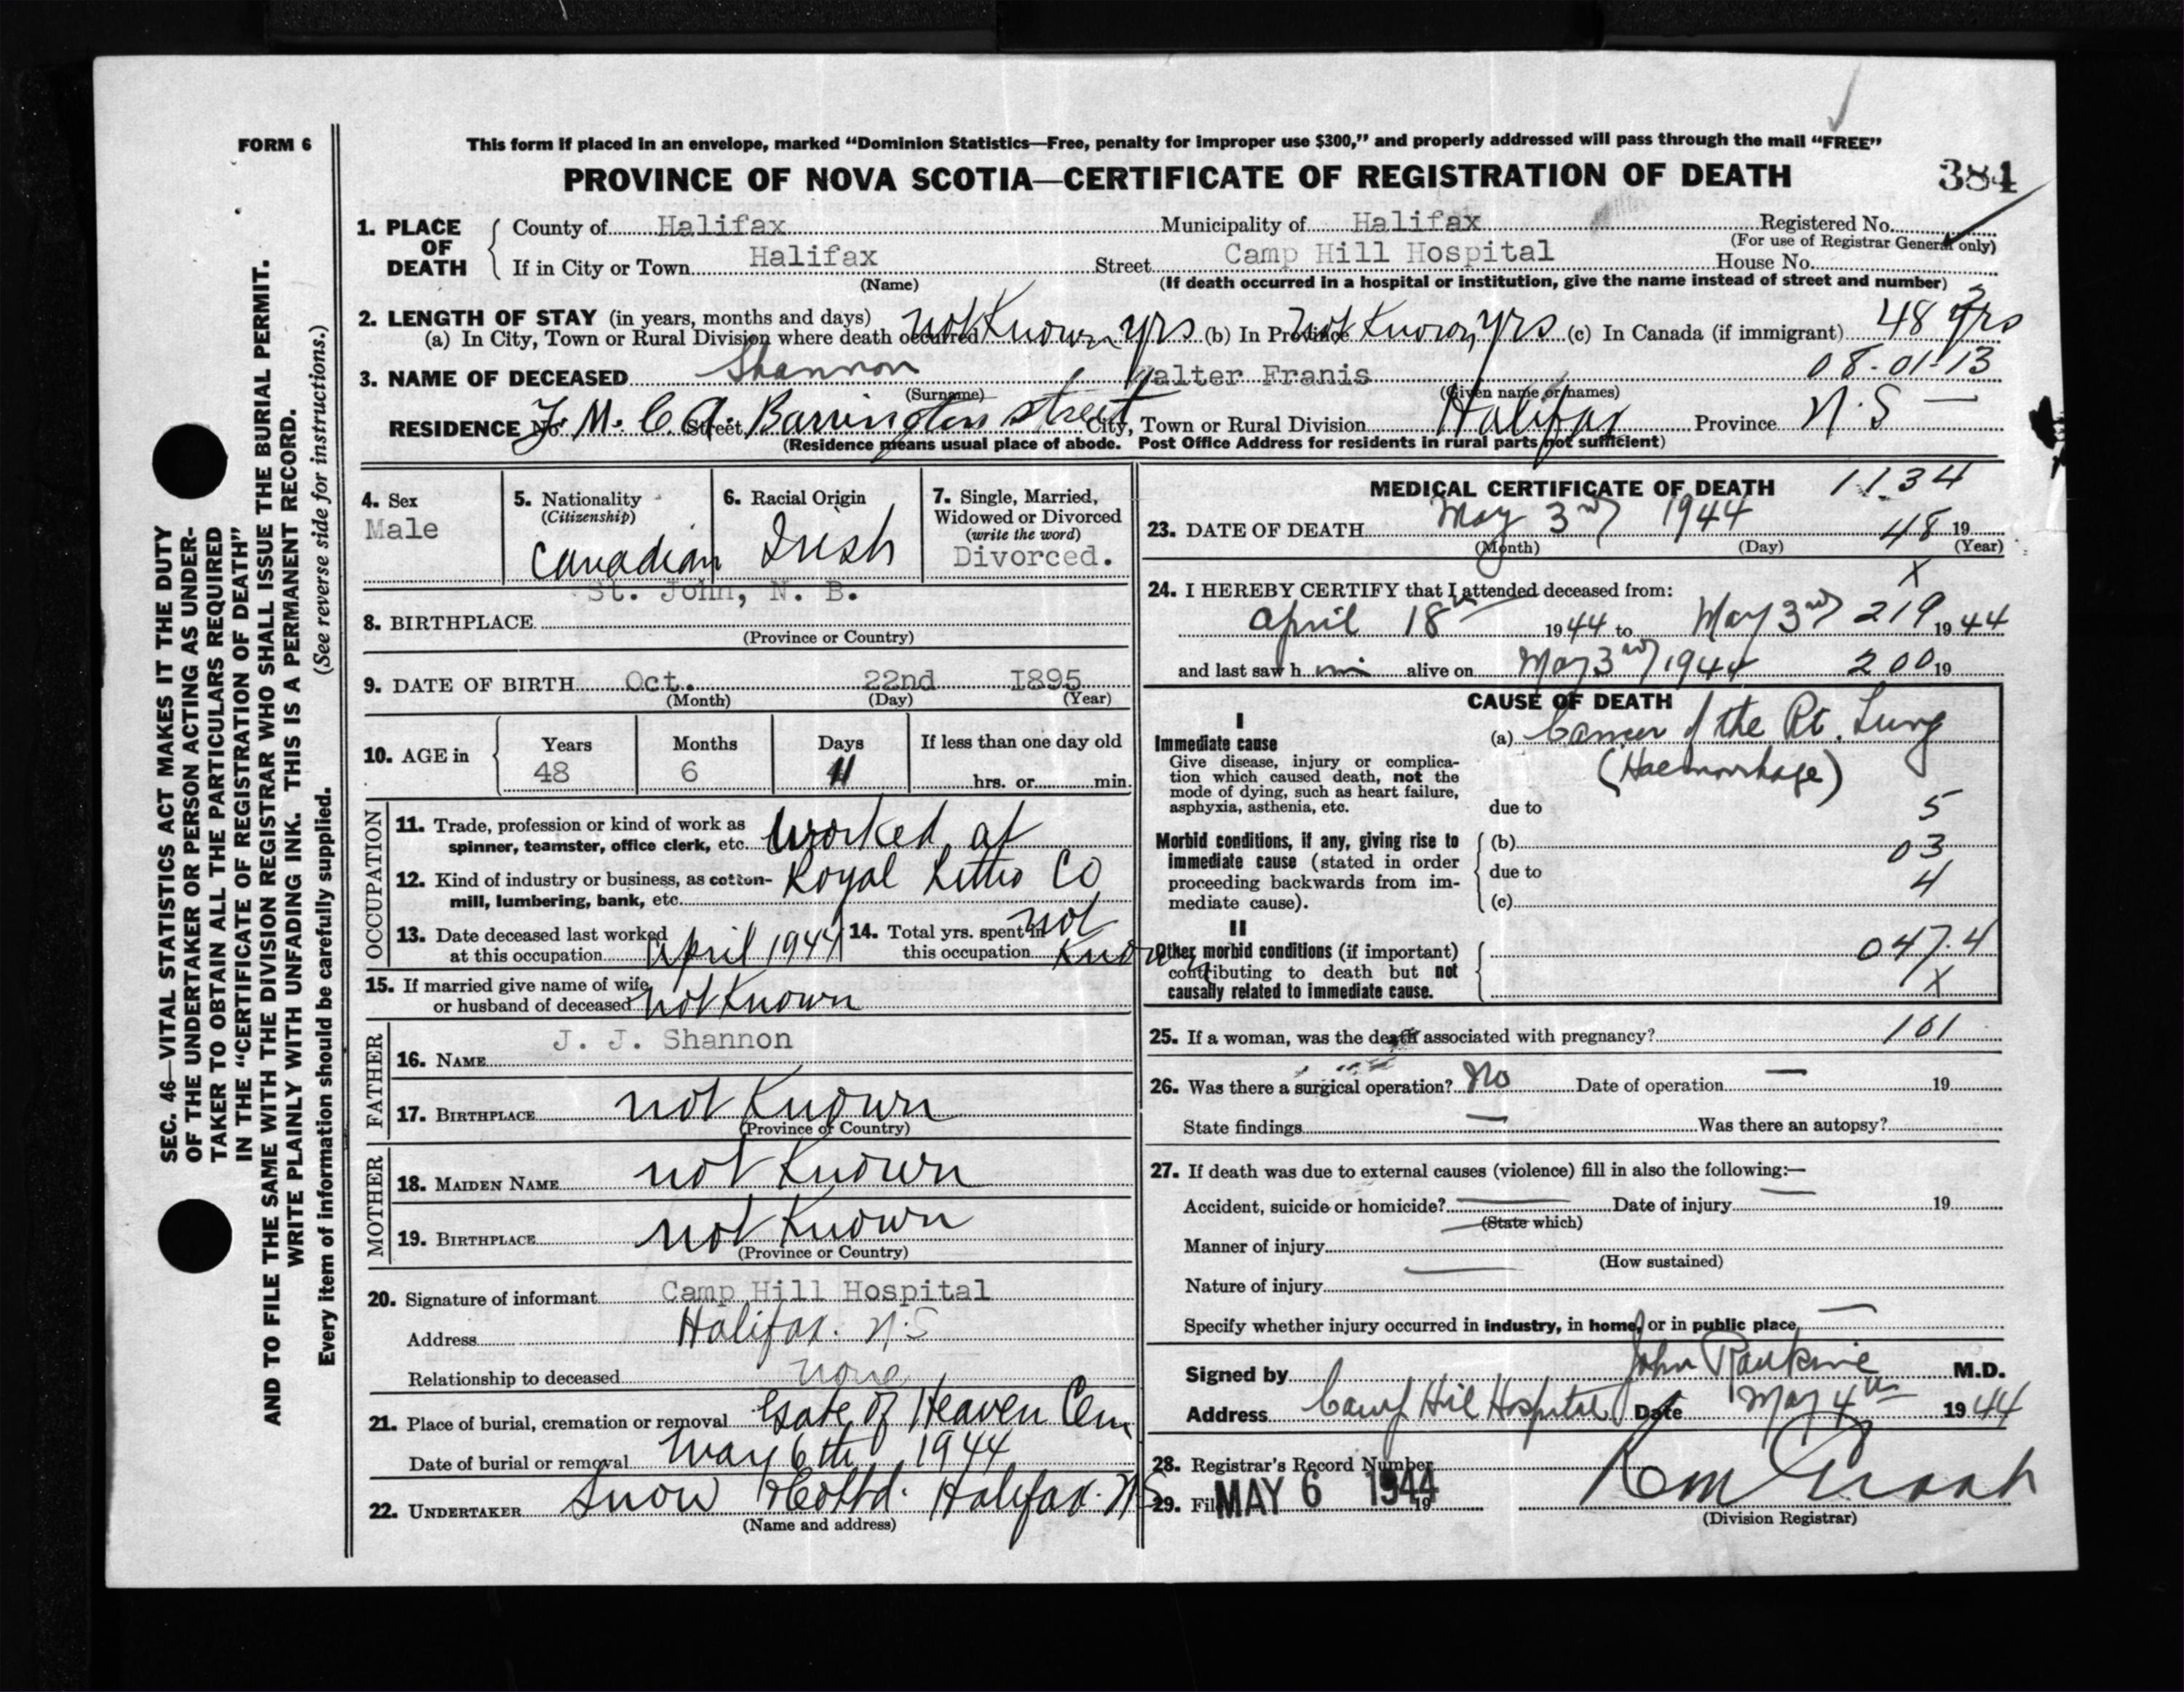 FORM 6
This form if placed in an envelope, marked "Dominion Statistics—Free, penalty for improper use $300," and properly addressed will pass through the mail "FREE"
PROVINCE OF NOVA SCOTIA—CERTIFICATE OF REGISTRATION OF DEATH 384
1. PLACE OF DEATH
County of Halifax Municipality of Halifax Registered No.
(For use of Registrar General only)
If in City or Town Halifax Street Camp Hill Hospital House No.
(Name) (If death occurred in a hospital or institution, give the name instead of street and number)
2. LENGTH OF STAY (in years, months and days)
(a) In City, Town or Rural Division where death occurred not Known yrs (b) In Province not Known yrs (c) In Canada (if immigrant) 48 yrs
3. NAME OF DECEASED Shannon Walter Franis 08-01-13
(Surname) (Given name or names)
RESIDENCE No. Y. M. C. A. Street Barrington street City, Town or Rural Division Halifax Province N.S —
(Residence means usual place of abode. Post Office Address for residents in rural parts not sufficient)
4. Sex
Male
5. Nationality
(Citizenship)
Canadian
6. Racial Origin
Irish
7. Single, Married,
Widowed or Divorced
(write the word)
Divorced.
St. John, N. B.
8. BIRTHPLACE
(Province or Country)
9. DATE OF BIRTH Oct. 22nd 1895
(Month) (Day) (Year)
10. AGE in
Years Months Days If less than one day old
48 6 11 hrs. or min.
OCCUPATION
11. Trade, profession or kind of work as
spinner, teamster, office clerk, etc. Worked at
12. Kind of industry or business, as cotton-
mill, lumbering, bank, etc. Royal Co
13. Date deceased last worked
at this occupation April 1944
14. Total yrs. spent in
this occupation not Known
15. If married give name of wife
or husband of deceased not Known
FATHER
J. J. Shannon
16. NAME
17. BIRTHPLACE not Known
(Province or Country)
MOTHER
18. MAIDEN NAME not Known
19. BIRTHPLACE not Known
(Province or Country)
20. Signature of informant Camp Hill Hospital
Address Halifax. N.S
Relationship to deceased none
21. Place of burial, cremation or removal Gate of Heaven Cem
Date of burial or removal May 6th 1944
22. UNDERTAKER Snow & Co Ltd. Halifax. N.S
(Name and address)
MEDICAL CERTIFICATE OF DEATH 1134
23. DATE OF DEATH May 3rd 1944 48 19
(Month) (Day) (Year)
X
24. I HEREBY CERTIFY that I attended deceased from:
April 18th 1944 to May 3rd 219 1944
and last saw him alive on May 3rd 1944 200 19
CAUSE OF DEATH
I
Immediate cause
Give disease, injury or complica-
tion which caused death, not the
mode of dying, such as heart failure,
asphyxia, asthenia, etc.
(a) Cancer of the Rt. Lung
(Haemorrhage)
due to 5
Morbid conditions, if any, giving rise to
immediate cause (stated in order
proceeding backwards from im-
mediate cause).
(b) 03
due to 4
(c)
II
Other morbid conditions (if important)
contributing to death but not
causally related to immediate cause.
047.4
X
25. If a woman, was the death associated with pregnancy? 101
26. Was there a surgical operation? No Date of operation — 19
State findings — Was there an autopsy?
27. If death was due to external causes (violence) fill in also the following:—
Accident, suicide or homicide? Date of injury 19
(State which)
Manner of injury
(How sustained)
Nature of injury
Specify whether injury occurred in industry, in home, or in public place
Signed by John Rankine M.D.
Address Camp Hill Hospital Date May 4th 1944
28. Registrar's Record Number
29. Filed MAY 6 1944 19
(Division Registrar)
SEC. 46—VITAL STATISTICS ACT MAKES IT THE DUTY
OF THE UNDERTAKER OR PERSON ACTING AS UNDER-
TAKER TO OBTAIN ALL THE PARTICULARS REQUIRED
IN THE "CERTIFICATE OF REGISTRATION OF DEATH"
AND TO FILE THE SAME WITH THE DIVISION REGISTRAR WHO SHALL ISSUE THE BURIAL PERMIT.
WRITE PLAINLY WITH UNFADING INK. THIS IS A PERMANENT RECORD.
Every item of information should be carefully supplied. (See reverse side for instructions.)